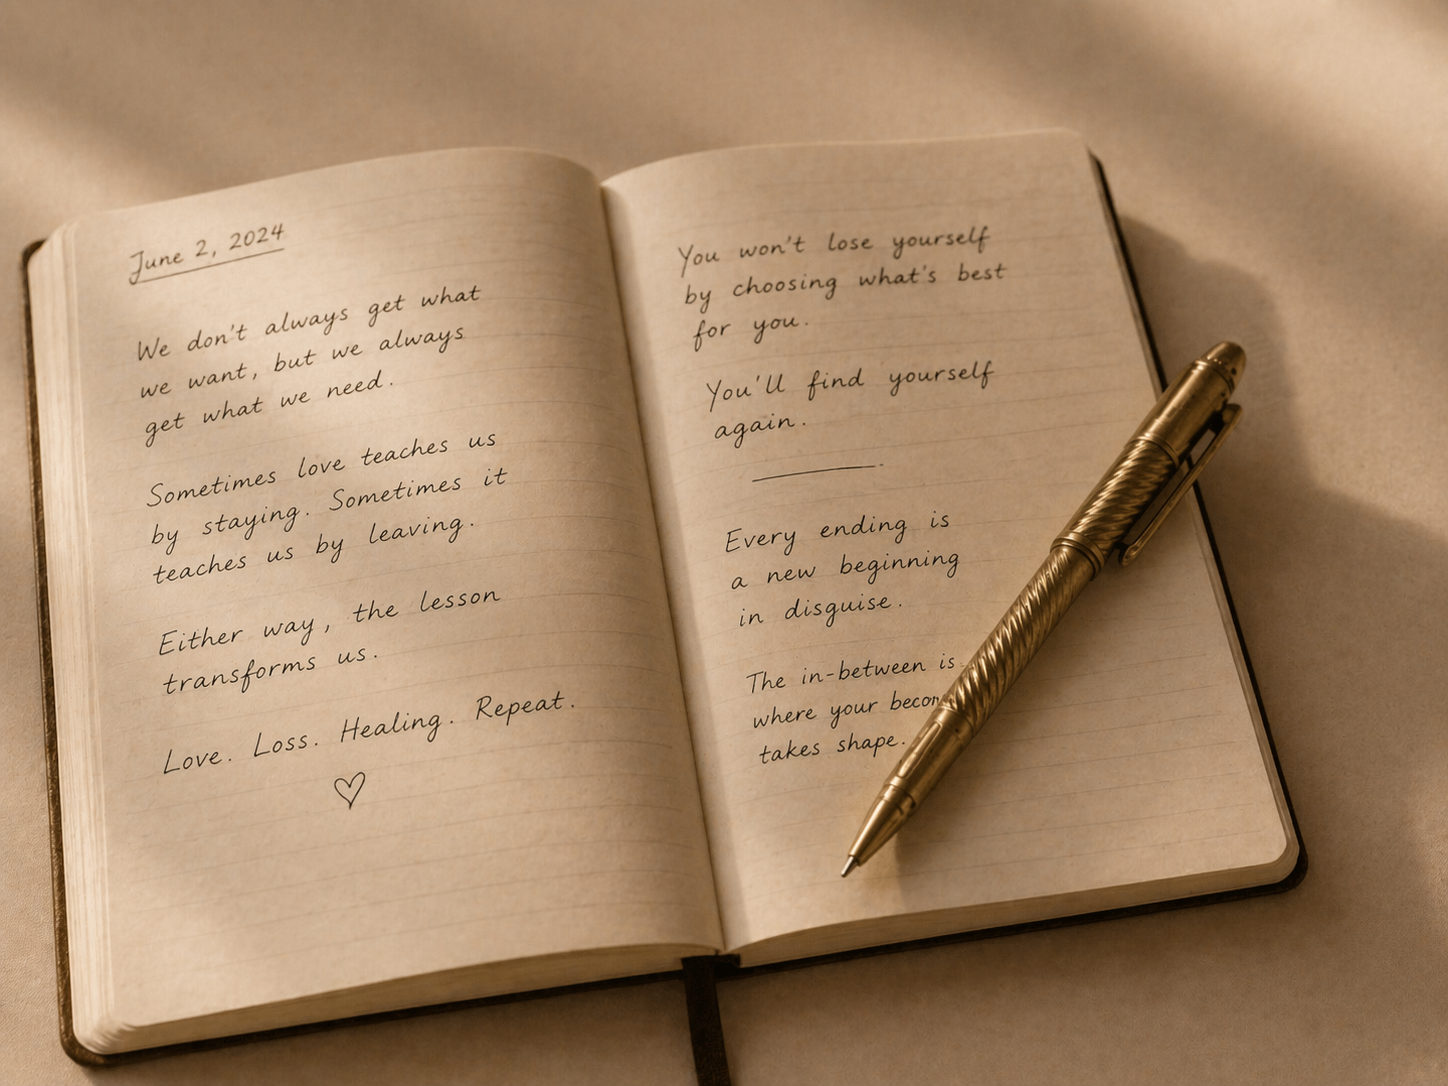 June 2, 2024
We don't always get what
we want, but we always
get what we need.
Sometimes love teaches us
by staying. Sometimes it
teaches us by leaving.
Either way, the lesson
transforms us.
Love. Loss. Healing. Repeat.
You won't lose yourself
by choosing what's best
for you.
You'll find yourself
again.
Every ending is
a new beginning
in disguise.
The in-between is
where your
takes shape.